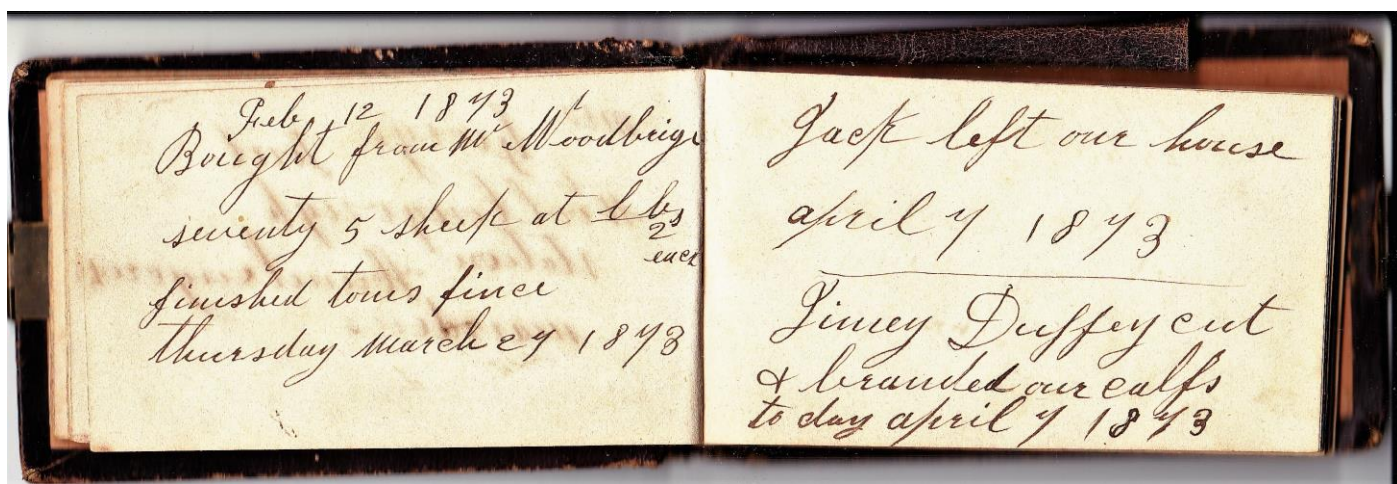 Feb 12 1873
Bought from Mr Woodbrige
seventy 5 sheep at
2
each
finished toms fince
thursday march 27 1873
Jack left our house
april 7 1873
Jimey Duffey cut
& branded our calfs
to day april 7 1873